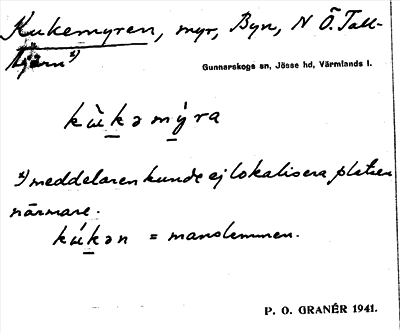 Kukemyren, myr, Byn, N Ö. Tall-
tjärn x)
Gunnarskogs sn, Jösse hd, Värmlands l.
kù̀kə mýra
x) meddelaren kunde ej lokalisera platsen
närmare.
kúkən = manslemmen.
P. O. GRANÉR 1941.